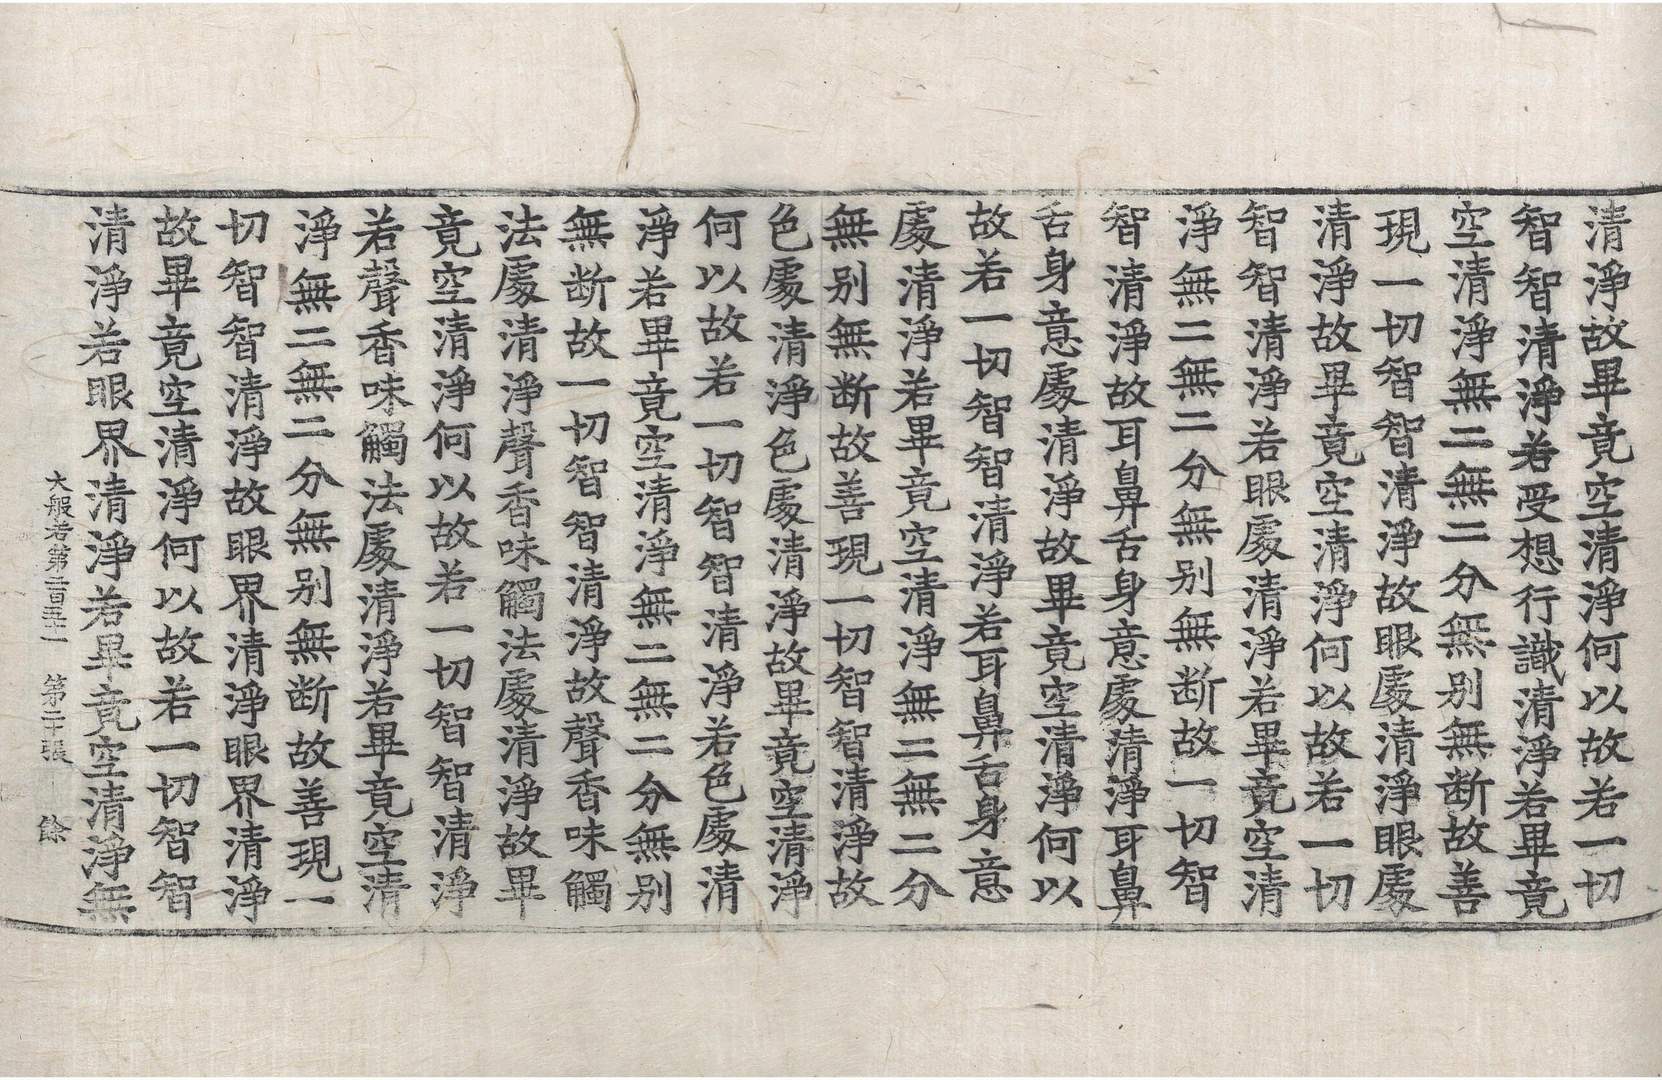 清淨故畢竟空清淨何以故若一切
智智清淨若受想行識清淨若畢竟
空清淨無二無二分無別無断故善
現一切智智清淨故眼處清淨眼處
清淨故畢竟空清淨何以故若一切
智智清淨若眼處清淨若畢竟空清
淨無二無二分無別無断故一切智
智清淨故耳鼻舌身意處清淨耳鼻
舌身意處清淨故畢竟空清淨何以
故若一切智智清淨若耳鼻舌身意
處清淨若畢竟空清淨無二無二分
無別無断故善現一切智智清淨故
色處清淨色處清淨故畢竟空清淨
何以故若一切智智清淨若色處清
淨若畢竟空清淨無二無二分無別
無断故一切智智清淨故聲香味觸
法處清淨聲香味觸法處清淨故畢
竟空清淨何以故若一切智智清淨
若聲香味觸法處清淨若畢竟空清
淨無二無二分無別無断故善現一
切智智清淨故眼界清淨眼界清淨
故畢竟空清淨何以故若一切智智
清淨若眼界清淨若畢竟空清淨無
大般若第二百五 第二十張 餘